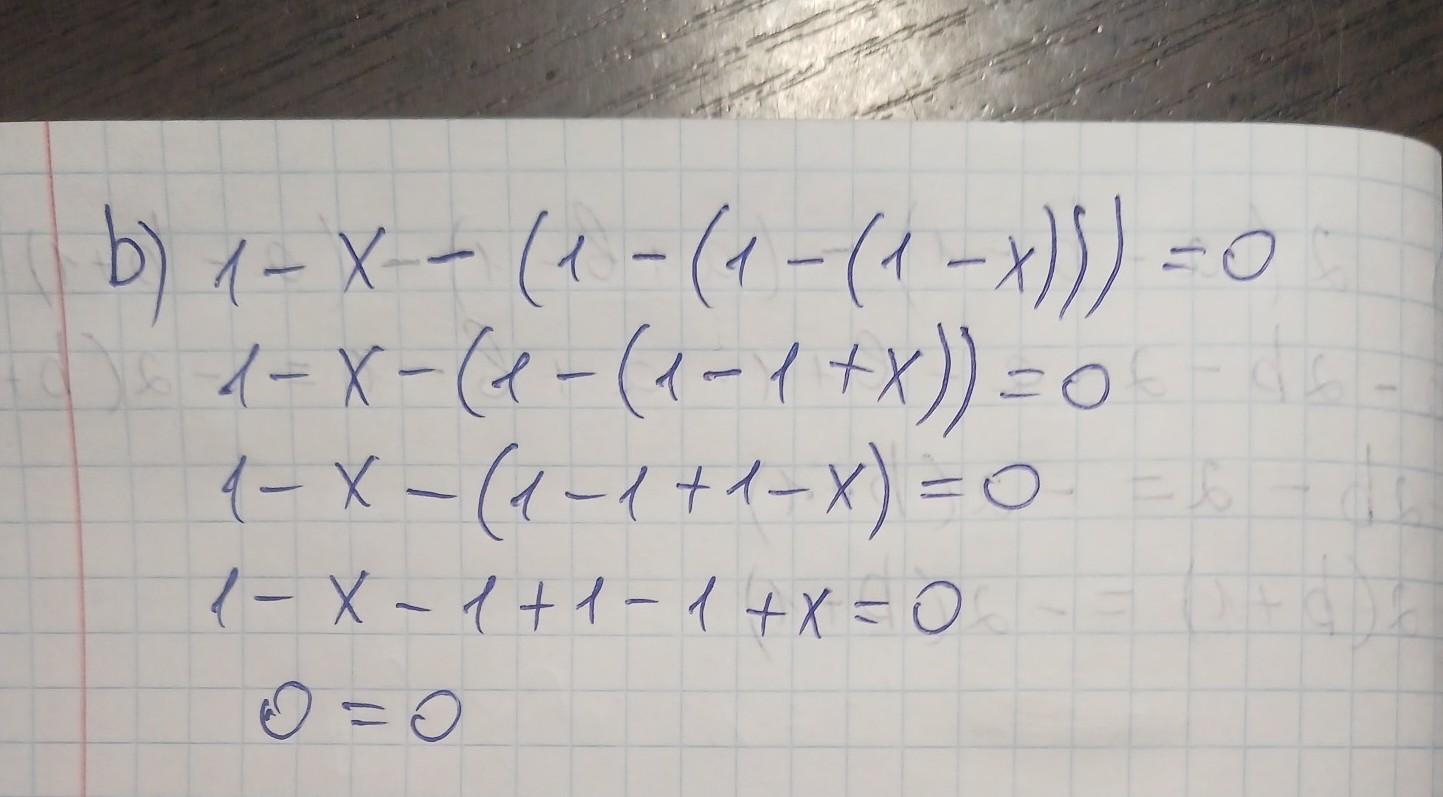 b) 1 - x - (1 - (1 - (1 - x))) = 0
1 - x - (1 - (1 - 1 + x)) = 0
1 - x - (1 - 1 + 1 - x) = 0
1 - x - 1 + 1 - 1 + x = 0
0 = 0